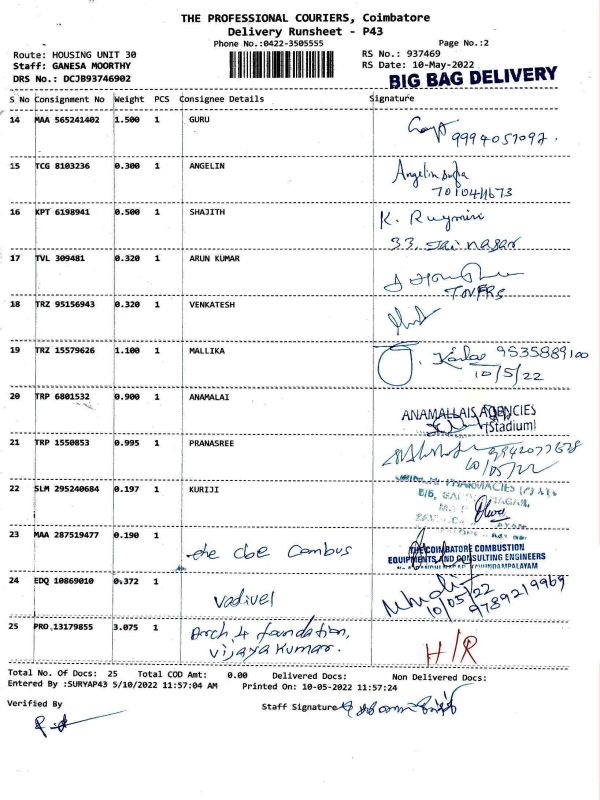 THE PROFESSIONAL COURIERS, Coimbatore
Delivery Runsheet - P43
Phone No.:0422-3505555 Page No.:2
Route: HOUSING UNIT 30 RS No.: 937469
Staff: GANESA MOORTHY RS Date: 10-May-2022
DRS No.: DCJB93746902 BIG BAG DELIVERY
S No Consignment No Weight PCS Consignee Details Signature
14 MAA 565241402 1.500 1 GURU
9994051097.
15 TCG 8103236 0.300 1 ANGELIN Angelin
16 KPT 6198941 0.500 1 SHAJITH K.
33, Jai nagar
17 TVL 309481 0.320 1 ARUN KUMAR
18 TRZ 95156943 0.320 1 VENKATESH
19 TRZ 15579626 1.100 1 MALLIKA 9535889100
10/5/22
20 TRP 6801532 0.900 1 ANAMALAI ANAMALLAIS AGENCIES
(Stadium)
21 TRP 1550853 0.995 1 PRANASREE
10/05/22
22 SLM 295240684 0.197 1 KURIJI PHARMACIES
23 MAA 287519477 0.190 1 the cbe Combus THE COIMBATORE COMBUSTION
EQUIPMENTS AND CONSULTING ENGINEERS
24 EDQ 10869010 0.372 1 Vadivel
10/05/22
9789219969
25 PRO 13179855 3.075 1 Arch 4 foundation,
Vijaya Kumar. H/R
Total No. Of Docs: 25 Total COD Amt: 0.00 Delivered Docs: Non Delivered Docs:
Entered By :SURYAP43 5/10/2022 11:57:04 AM Printed On: 10-05-2022 11:57:24
Verified By Staff Signature